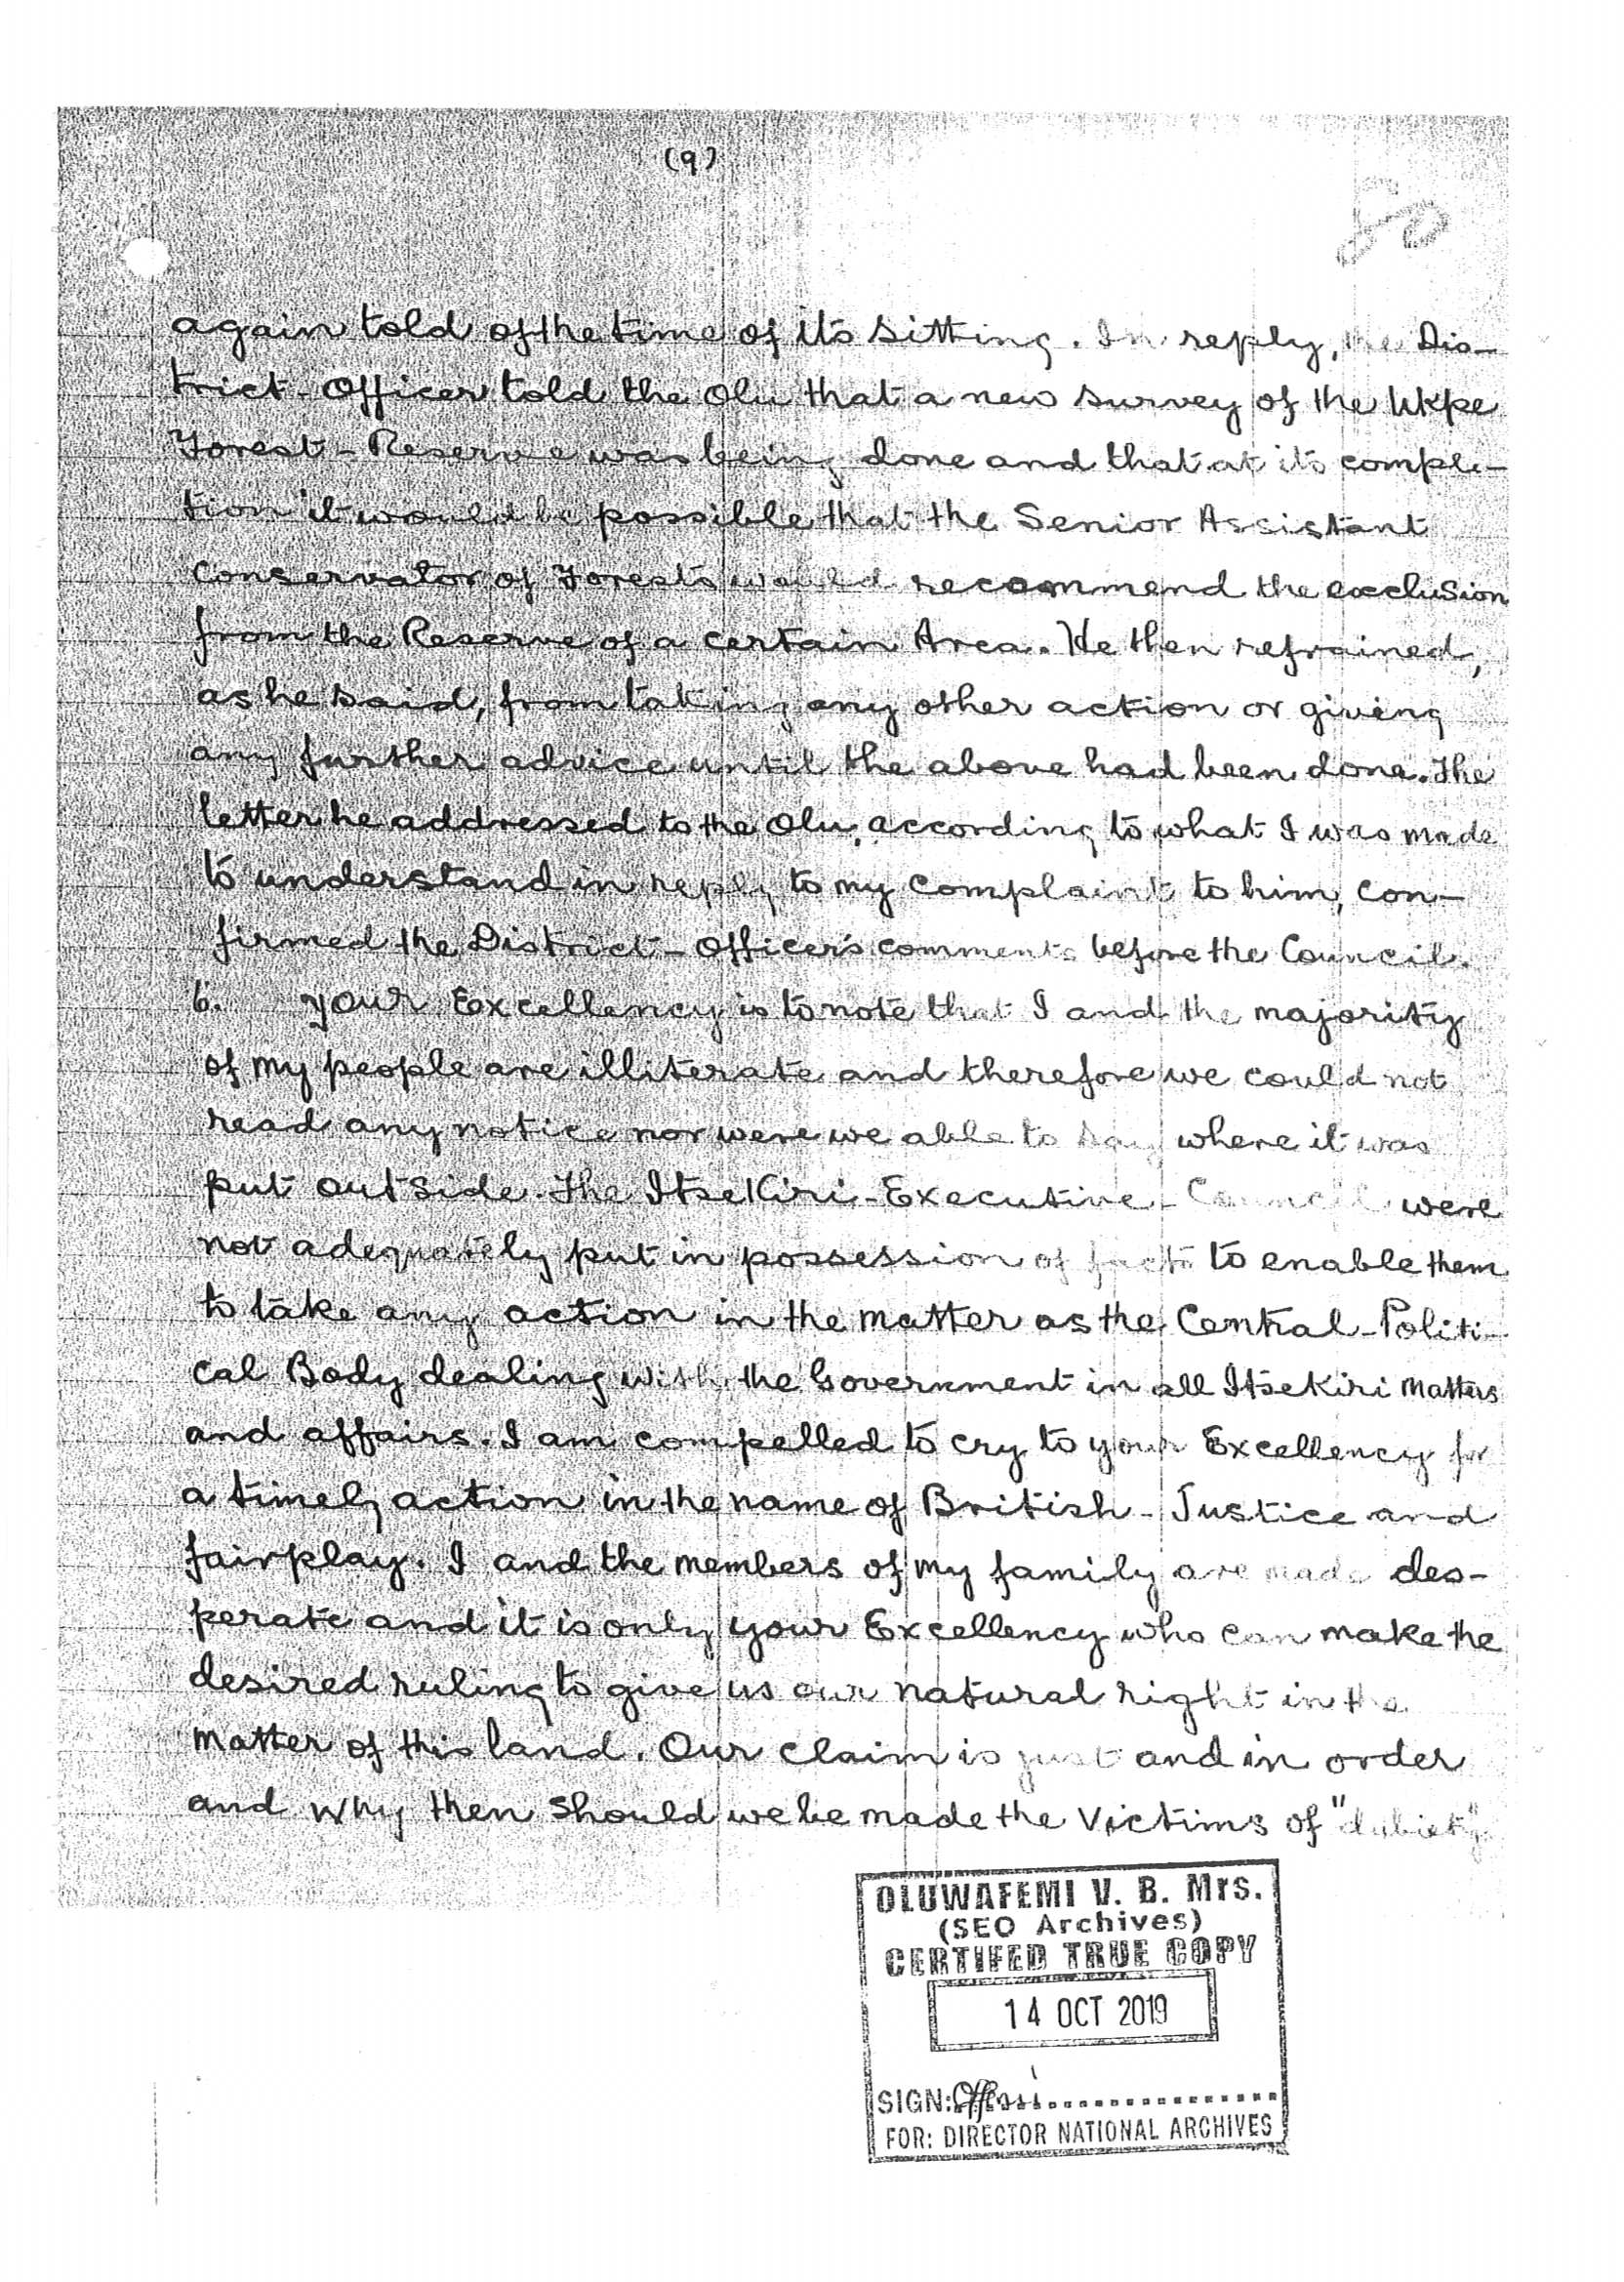 (9)
50
again told of the time of its sitting. In reply, the Dis-
trict-Officer told the Olu that a new survey of the Ukpe
Forest-Reserve was being done and that at its comple-
tion it would be possible that the Senior Assistant
Conservator of Forests would recommend the exclusion
from the Reserve of a certain Area. He then refrained,
as he said, from taking any other action or giving
any further advice until the above had been done. The
letter he addressed to the Olu, according to what I was made
to understand in reply to my complaint to him, con-
firmed the District-Officer's comments before the Council.
6. Your Excellency is to note that I and the majority
of my people are illiterate and therefore we could not
read any notice nor were we able to say where it was
put outside. The ItseKiri-Executive-Council were
not adequately put in possession of facts to enable them
to take any action in the matter as the Central-Politi-
cal Body dealing with the Government in all ItseKiri Matters
and affairs. I am compelled to cry to your Excellency for
a timely action in the name of British-Justice and
fairplay. I and the members of my family are made des-
perate and it is only your Excellency who can make the
desired ruling to give us our natural right in the
matter of this land. Our claim is just and in order
and why then should we be made the victims of "dubiety"
OLUWAFEMI V. B. Mrs.
(SEO Archives)
CERTIFED TRUE COPY
14 OCT 2019
SIGN:
FOR: DIRECTOR NATIONAL ARCHIVES